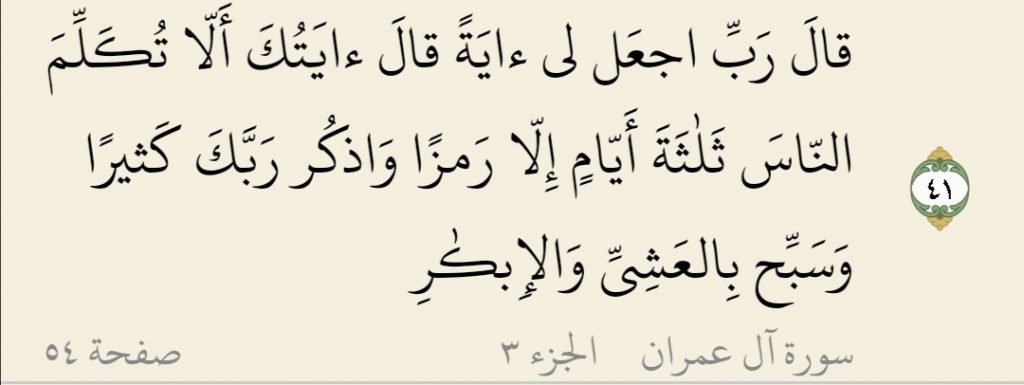 قالَ رَبِّ اجعَل لى ءايَةً قالَ ءايَتُكَ أَلّا تُكَلِّمَ
النّاسَ ثَلٰثَةَ أَيّامٍ إِلّا رَمزًا وَاذكُر رَبَّكَ كَثيرًا
٤١
وَسَبِّح بِالعَشِىِّ وَالإِبكٰرِ
سورة آل عمران الجزء ٣ صفحة ٥٤